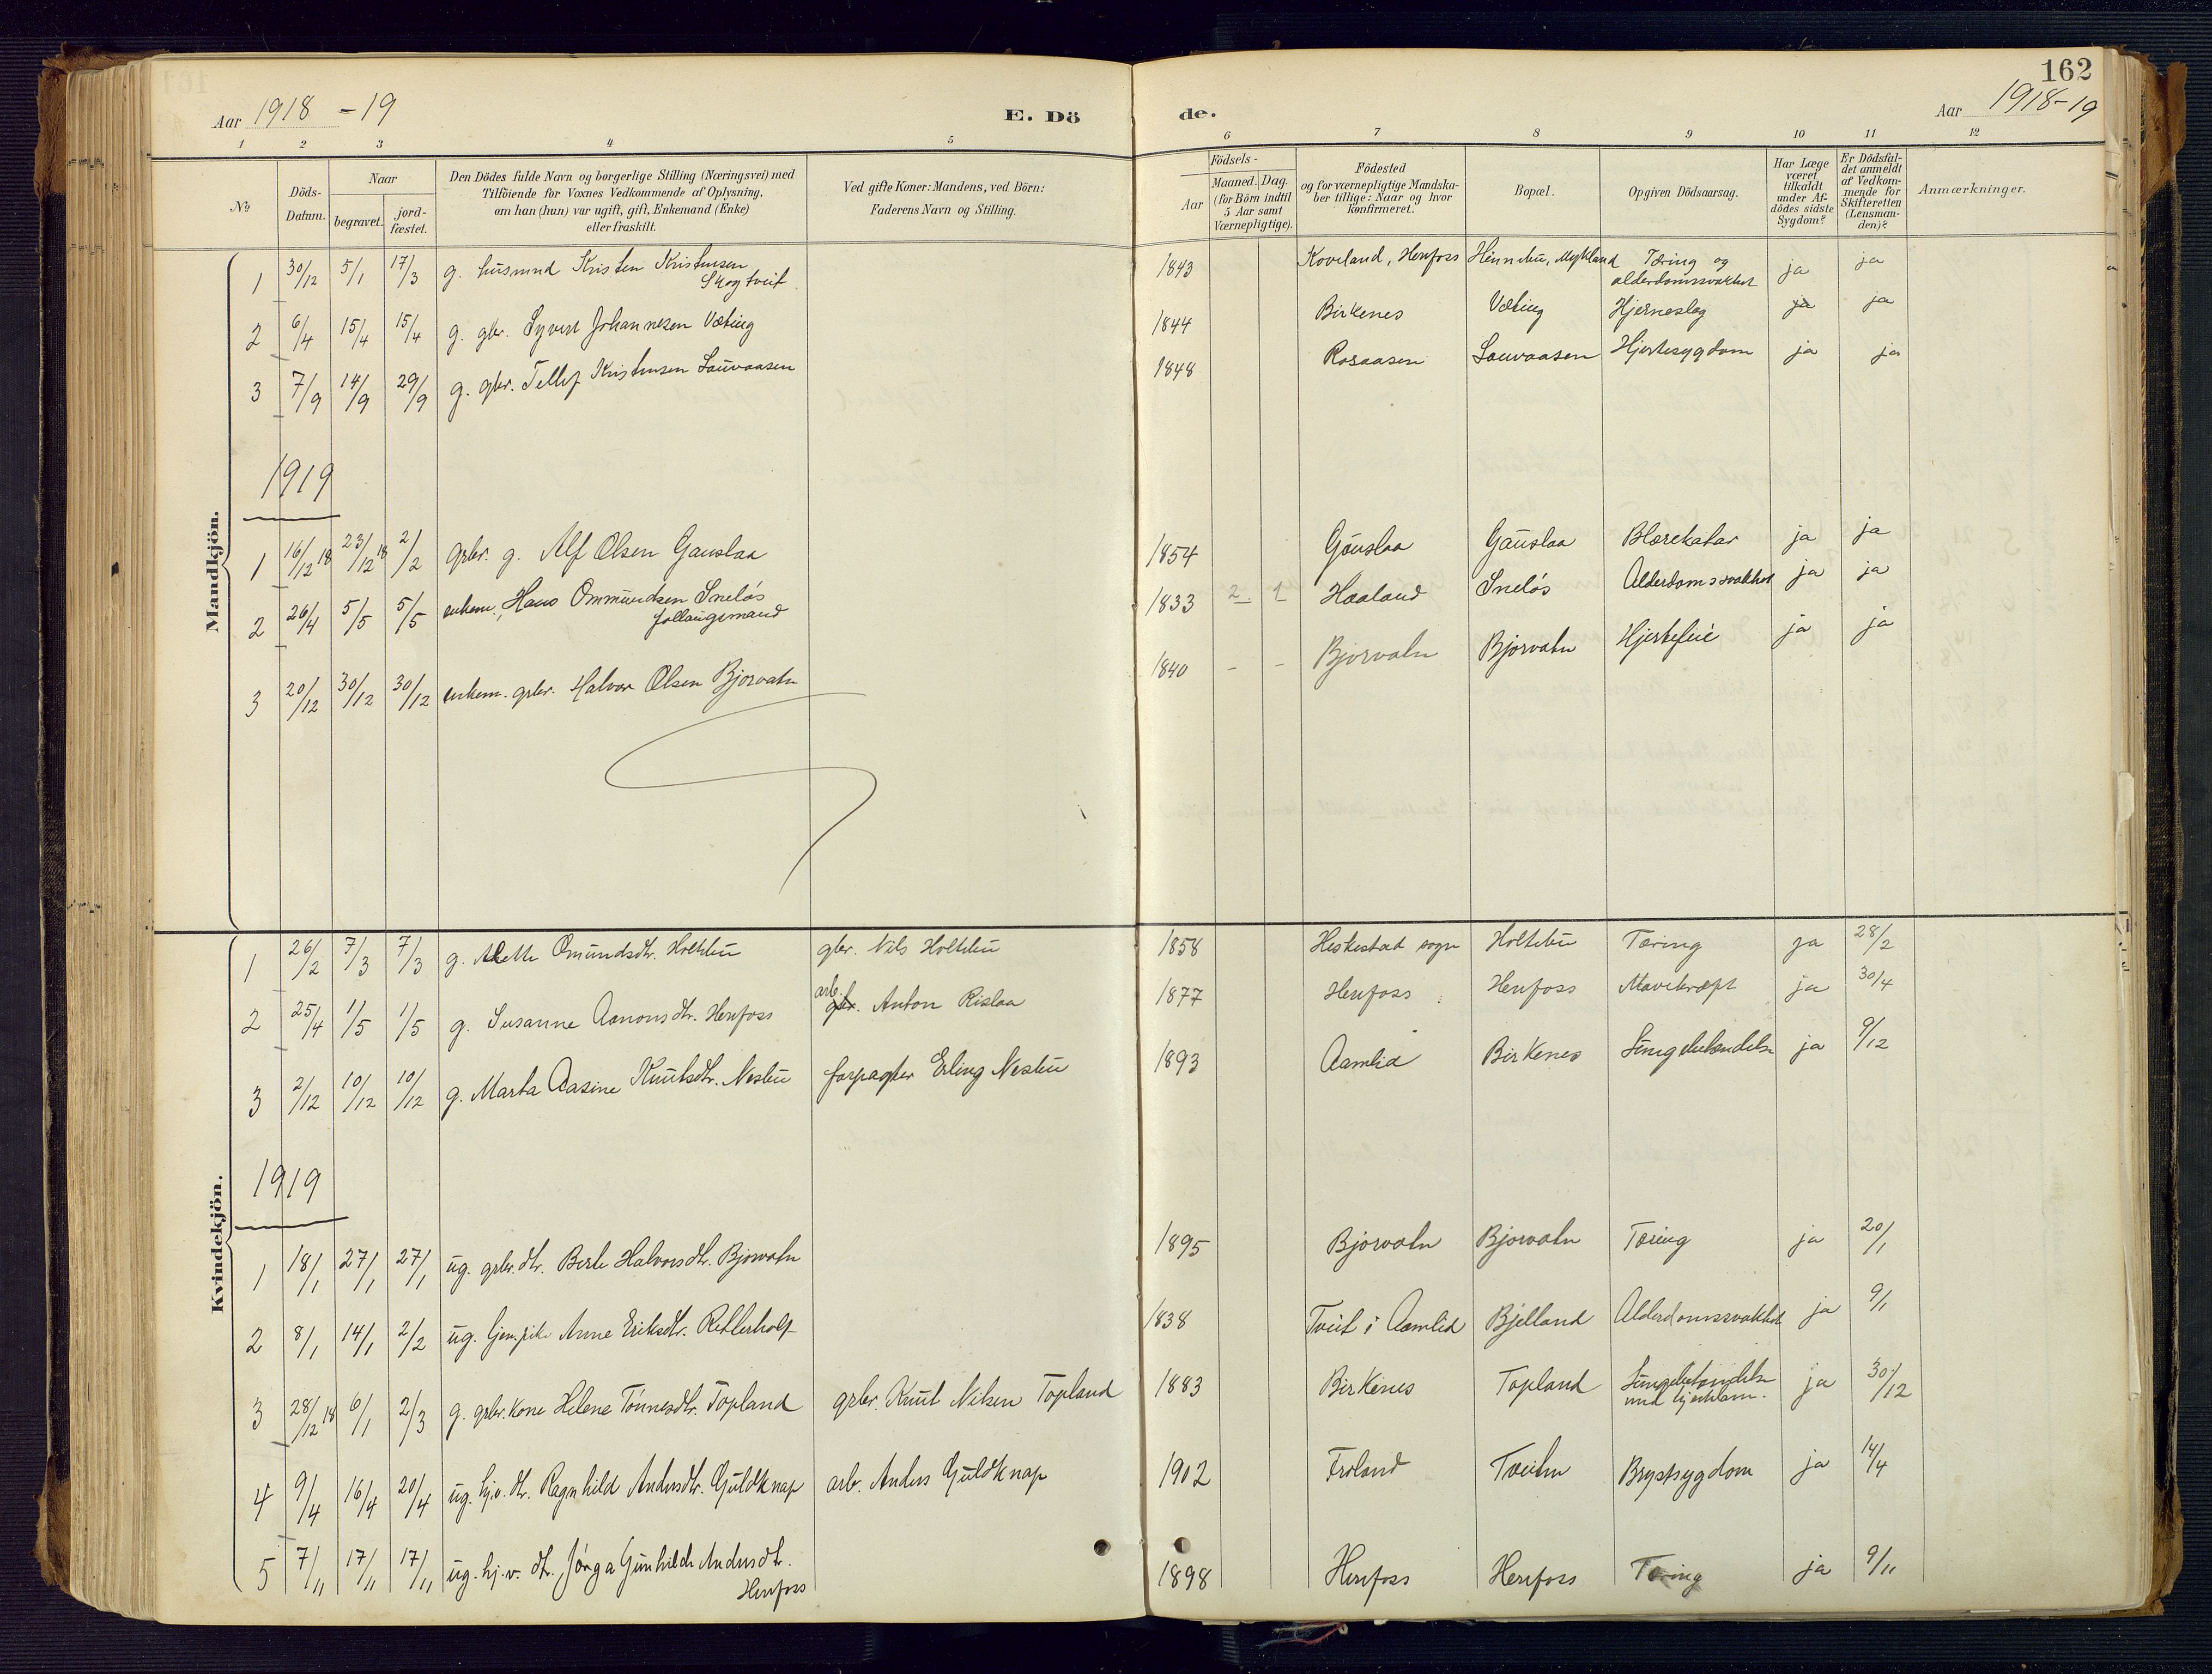 162
Aar 1918-19
E. Dö
de.
Aar 1918-19
1 2 3 4 5 6 7 8 9 10 11 12
No
Döds-Datum.
Naar
begravet.
jord-fæstet.
Den Dödes fulde Navn og borgerlige Stilling (Næringsvei) med
Tilföiende for Voxnes Vedkommende af Oplysning,
om han (hun) var ugift, gift, Enkemand (Enke)
eller fraskilt.
Ved gifte Koner: Mandens, ved Börn:
Faderens Navn og Stilling.
Födsels-
Aar
Maaned. Dag.
(for Börn indtil
5 Aar samt
Værnepligtige).
Födested
og for værnepligtige Mandska-
ber tillige: Naar og hvor
konfirmeret.
Bopæl.
Opgiven Dödsaarsag.
Har Læge
været
tilkaldt
under Af-
dödes sidste
Sygdom?
Er Dödsfal-
det anmeldt
af Vedkom-
mende for
Skifteretten
(Lensman-
den)?
Anmærkninger.
Mandkjön.
1 30/12 5/1 17/3 g. husmnd Kristen Kristensen Skogtveit 1843 Koveland, Herefoss Mykland Tæring og alderdomssvakhet ja ja
2 6/4 15/4 15/4 g. gbr. Syvert Johannesen Væting 1844 Birkenes Væting Hjerneslag ja ja
3 7/9 14/9 29/9 g. gbr. Tellef Kristensen Lauvaasen 1848 Rosaasen Lauvaasen Hjertesygdom ja ja
1919
1 16/12 18 23/12 18 2/2 grbr. g. Alf Olsen Gauslaa 1854 Gauslaa Gauslaa Blærekatar ja ja
2 26/4 5/5 5/5 enkem. Hans Ommundsen Sneløs follaugsmand 1833 2 1 Haaland Sneløs Alderdomssvakhet ja ja
3 20/12 30/12 30/12 enkem. grbr. Halvor Olsen Bjorvatn 1840 - - Bjorvatn Bjorvatn Hjertefeil ja ja
Kvindekjön.
1 26/2 7/3 7/3 g. Omundsdtr. Holtebu gbr. Nils Holtebu 1858 Heskestad sogn Holtebu Tæring ja 28/2
2 25/4 1/5 1/5 g. Susanne Aanonsdtr. Herefoss arb. gbr. Anton Rislaa 1877 Herefoss Herefoss Mavekræft ja 30/4
3 2/12 10/12 10/12 g. Marta Aasine Knutsdtr. Nesbu forpagter Erling Nesbu 1893 Aamlid Birkenes Lungebetændelse ja 9/12
1919
1 18/1 27/1 27/1 ug. grbr. dtr. Berte Halvorsdtr. Bjorvatn 1895 Bjorvatn Bjorvatn Tæring ja 20/1
2 8/1 14/1 2/2 ug. Anne Eriksdtr. Retterholt 1838 Tveit i Aamlid Bjelland Alderdomssvakhet ja 9/1
3 28/12 18 6/1 2/3 g. grbr. kone Helene Tønnesdtr. Topland grbr. Knut Nilsen Topland 1883 Birkenes Topland Lungebetændelse med hjertelam. ja 30/12
4 9/4 16/4 20/4 ug. hj.v. dtr. Ragnhild Andersdtr. Guldknap arb. Anders Guldknap 1902 Froland Tveiten Brystsygdom ja 14/4
5 7/11 17/11 17/11 ug. hj.v. dtr. Jørga Gunhilde Andersdtr. Herefoss 1898 Herefoss Herefoss Tæring ja 9/11